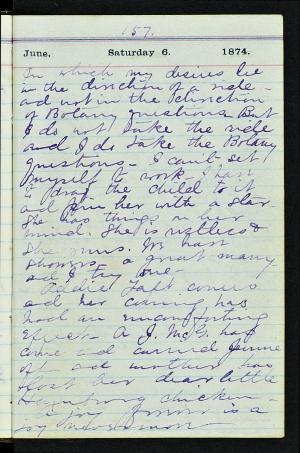 157.
June. Saturday 6. 1874.
In which my desires lie
in the direction of a ride
and not in the direction
of Botany questions But
I do not take the ride
and I do take the Botany
questions - I can't set
myself to work. I have
to drag the child to it
and her with a star
She has things on her
mind. She is restless &
she runs. We have
showers, a great many
and I try one -
Addie Taft comes
and her coming has
had an uncomforting
effect - A J. McG. has
come and carried Jennie
off and mother has
lost her dear little
Hamburg chicken -
is a